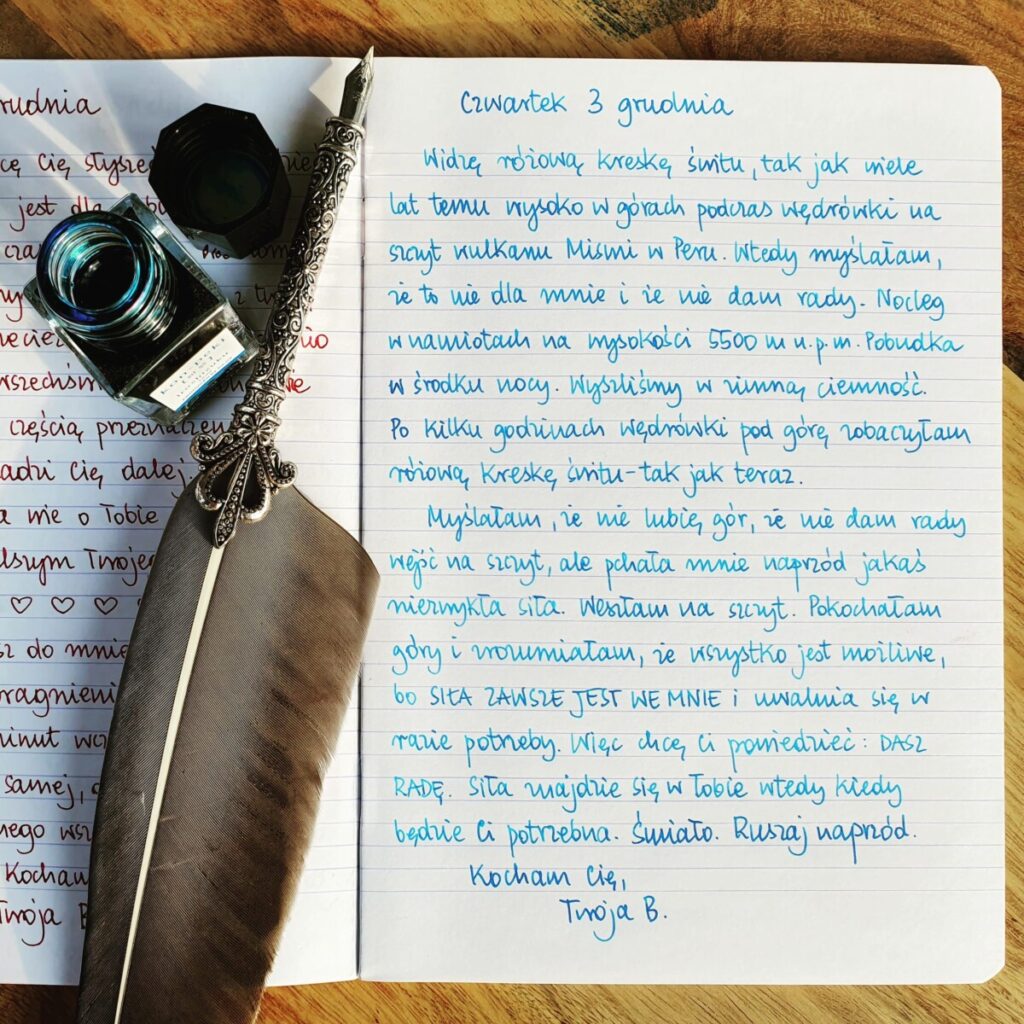 rudnia
cę Cię słysze
jest dla
cza
z t
wszechświ
częścią przeznaczen
adzi Cię dalej
a nie o Tobie
lszym Twojeg
♡ ♡ ♡
sz do mnie
pragnieni
minut wcz
samej,
nego wsz
Kocham
Twoja B
Czwartek 3 grudnia
Widzę różową kreskę świtu, tak jak wiele
lat temu wysoko w górach podczas wędrówki na
szczyt wulkanu Mismi w Peru. Wtedy myślałam,
że to nie dla mnie i że nie dam rady. Nocleg
w namiotach na wysokości 5500 m n.p.m. Pobudka
w środku nocy. Wyszliśmy w zimną ciemność.
Po kilku godzinach wędrówki pod górę zobaczyłam
różową kreskę świtu - tak jak teraz.
Myślałam, że nie lubię gór, że nie dam rady
wejść na szczyt, ale pchała mnie naprzód jakaś
niezwykła siła. Weszłam na szczyt. Pokochałam
góry i zrozumiałam, że wszystko jest możliwe,
bo SIŁA ZAWSZE JEST WE MNIE i uwalnia się w
razie potrzeby. Więc chcę Ci powiedzieć: DASZ
RADĘ. Siła znajdzie się w Tobie wtedy kiedy
będzie Ci potrzebna. Śmiało. Ruszaj naprzód.
Kocham Cię,
Twoja B.